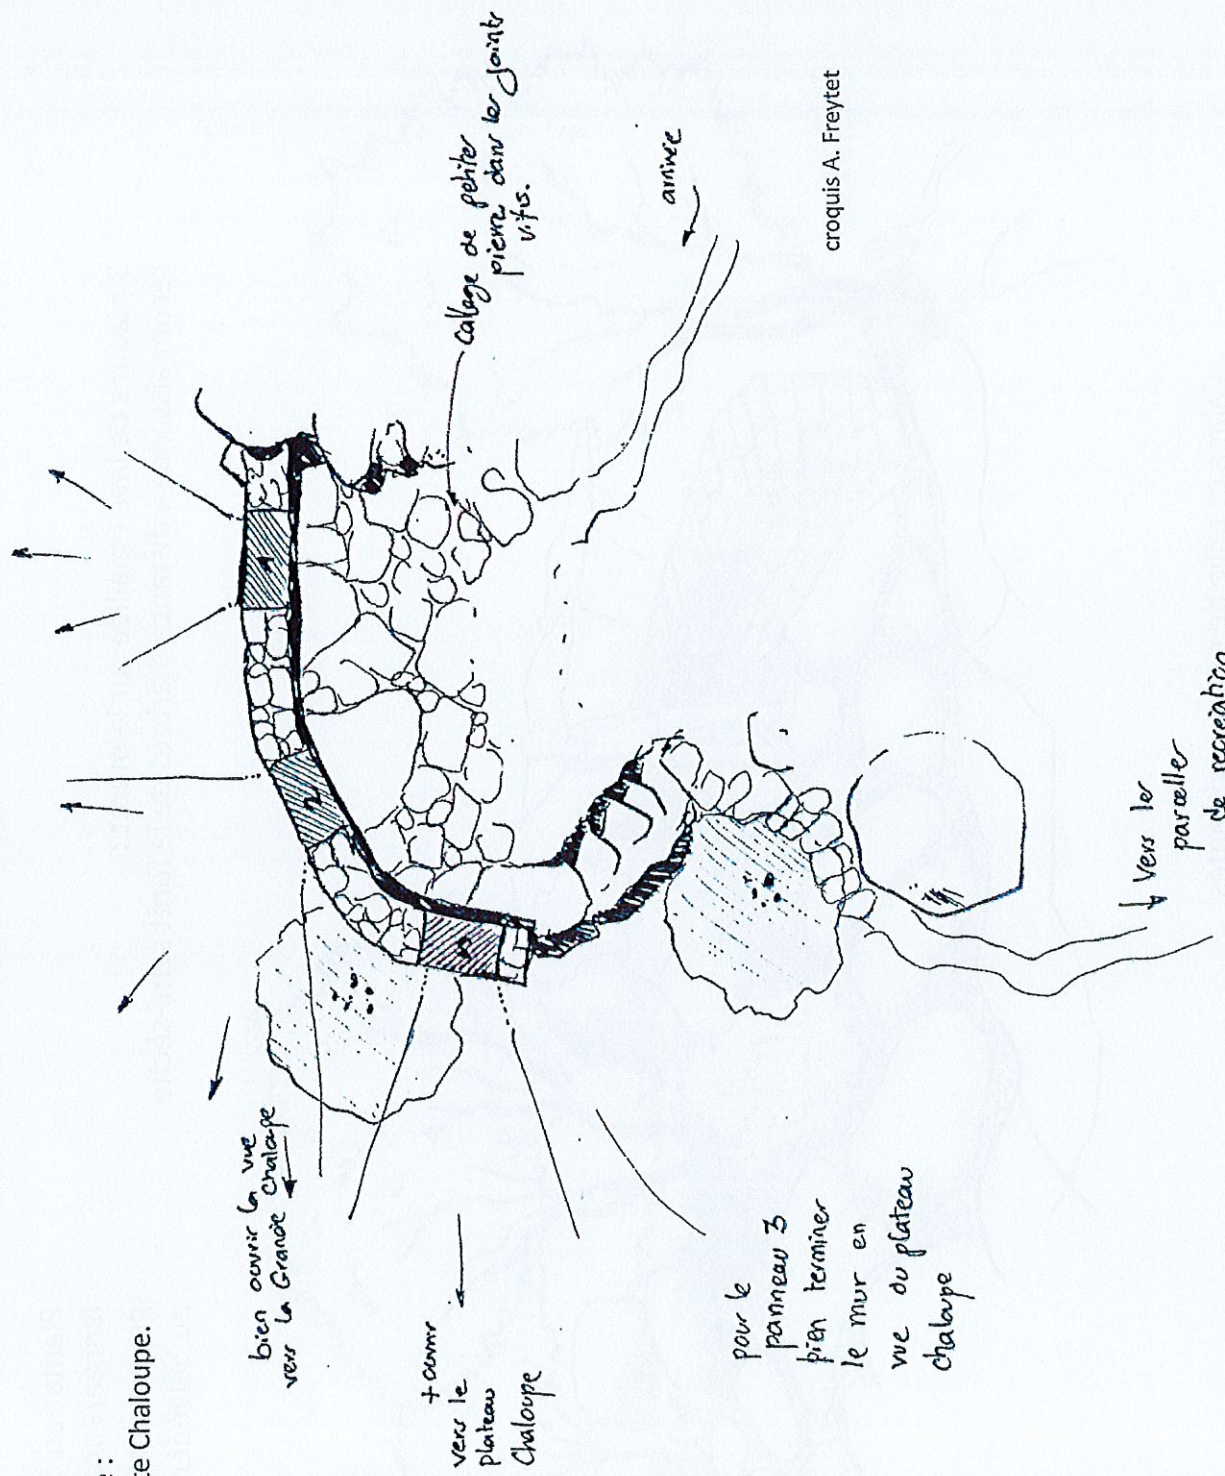 :
te Chaloupe.
bien ouvrir la vue
vers la Grande chaloupe
+ ouvrir
vers le
plateau
Chaloupe
pour le
panneau 3
bien terminer
le mur en
vue du plateau
chaloupe
1
2
3
calage de petites
pierres dans les joints
vifs.
arrivée
croquis A. Freytet
vers les
parcelles
de recréation